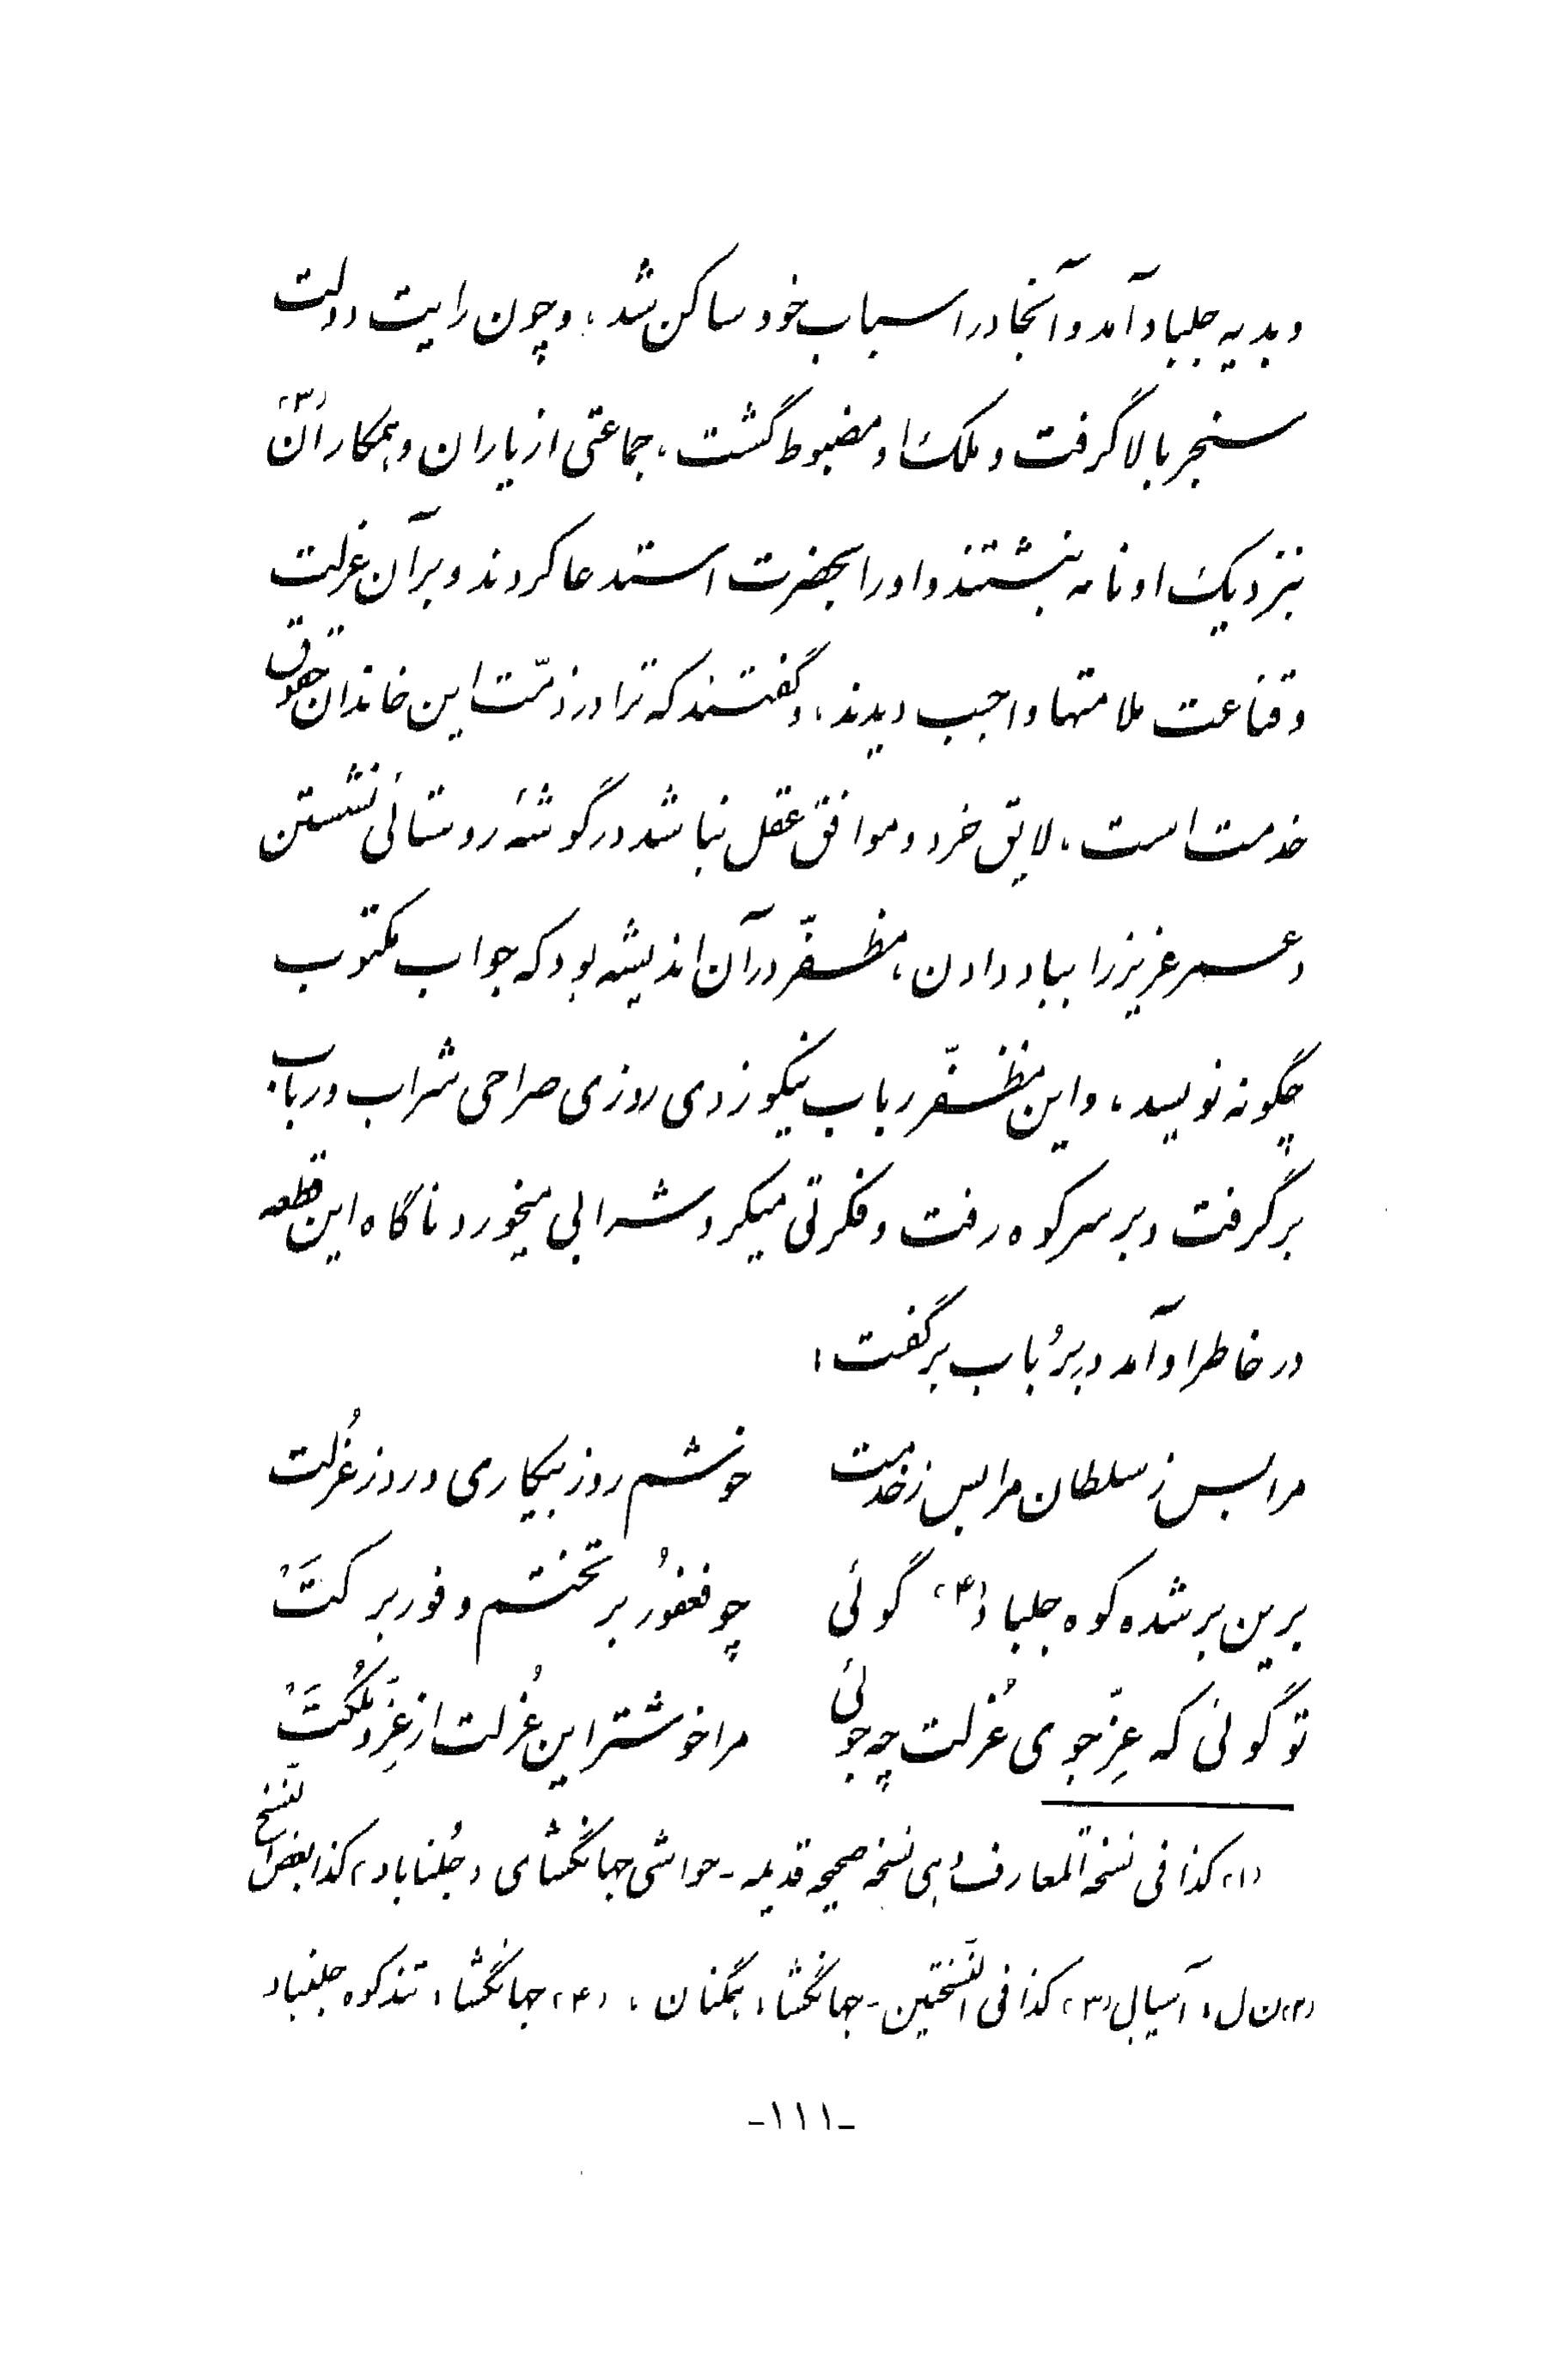 و بدیه جلباد آمد و آنجا در اسباب خود ساکن شد، و چون رایت دولت
سنجر بالا گرفت و ملک او مضبوط گشت، جماعتی از یاران و همکاران (۳)
بنزدیک او نامه بنبشتند و او را بحضرت استدعا کردند و بر آن عزلت
و قناعت ملامتها واجب دیدند، و گفتند که ترا در ذمّت این خاندان حقوق
خدمت است، لایق خرد و موافق عقل نباشد در گوشهٔ روستائی نشستن
و عمر عزیز را بباد دادن، مظفّر در آن اندیشه بود که جواب مکتوب
چگونه نویسد، و این مظفّر رباب نیکو زدی روزی صراحی شراب و رباب
برگرفت و بر سر کوه رفت و فکرتی میکرد و شرابی میخورد ناگاه این قطعه
در خاطر او آمد و برُباب برگفت:
مرا بس ز سلطان مرا بس ز خدمت خوشم روز بیکاری و روز عُزلت
برین بر شده کوه جلباد (۴) گوئی چو فغفُور بر تختم و فور بر کَتْ
تو گوئی که عِزّ جوی عُزلت چه جوئی مرا خوشتر این عُزلت از عِزّ و مُلکَتْ
(۱) کذا فی نسخة المعارف و هی نسخه صحیحه قدیمه - حواشی جهانگشای و جُلناباد، کذا بعض النّسخ
(۲) ن ل: آسیابی (۳) کذا فی النّسختین - جهانگشا: همگنان، (۴) جهانگشا: تند کوه جلنباد
-۱۱۱-